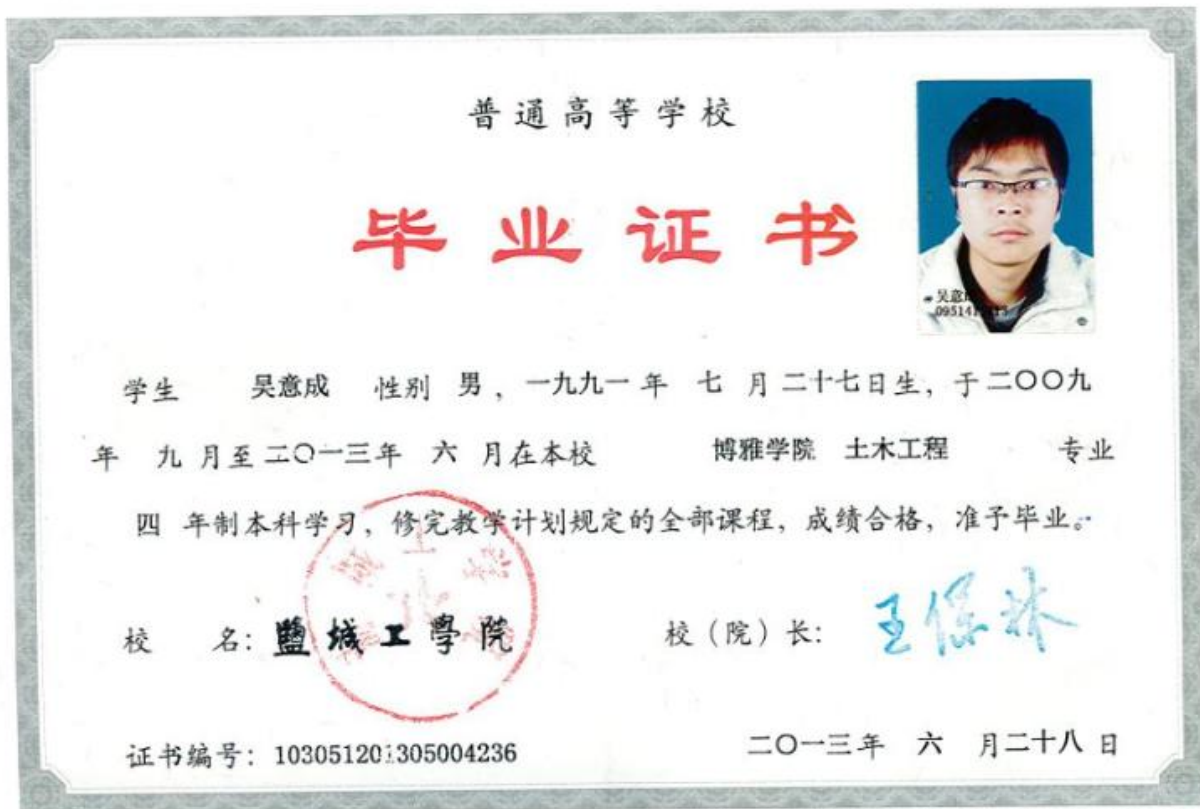 普通高等学校
毕业证书
吴意成
学生 吴意成 性别 男，一九九一年 七 月二十七日生，于二〇〇九
年 九 月至二〇一三年 六 月在本校 博雅学院 土木工程 专业
四 年制本科学习，修完教学计划规定的全部课程，成绩合格，准予毕业。
校 名：鹽城工學院
校（院）长：王保林
证书编号：103051201305004236
二〇一三年 六 月二十八日